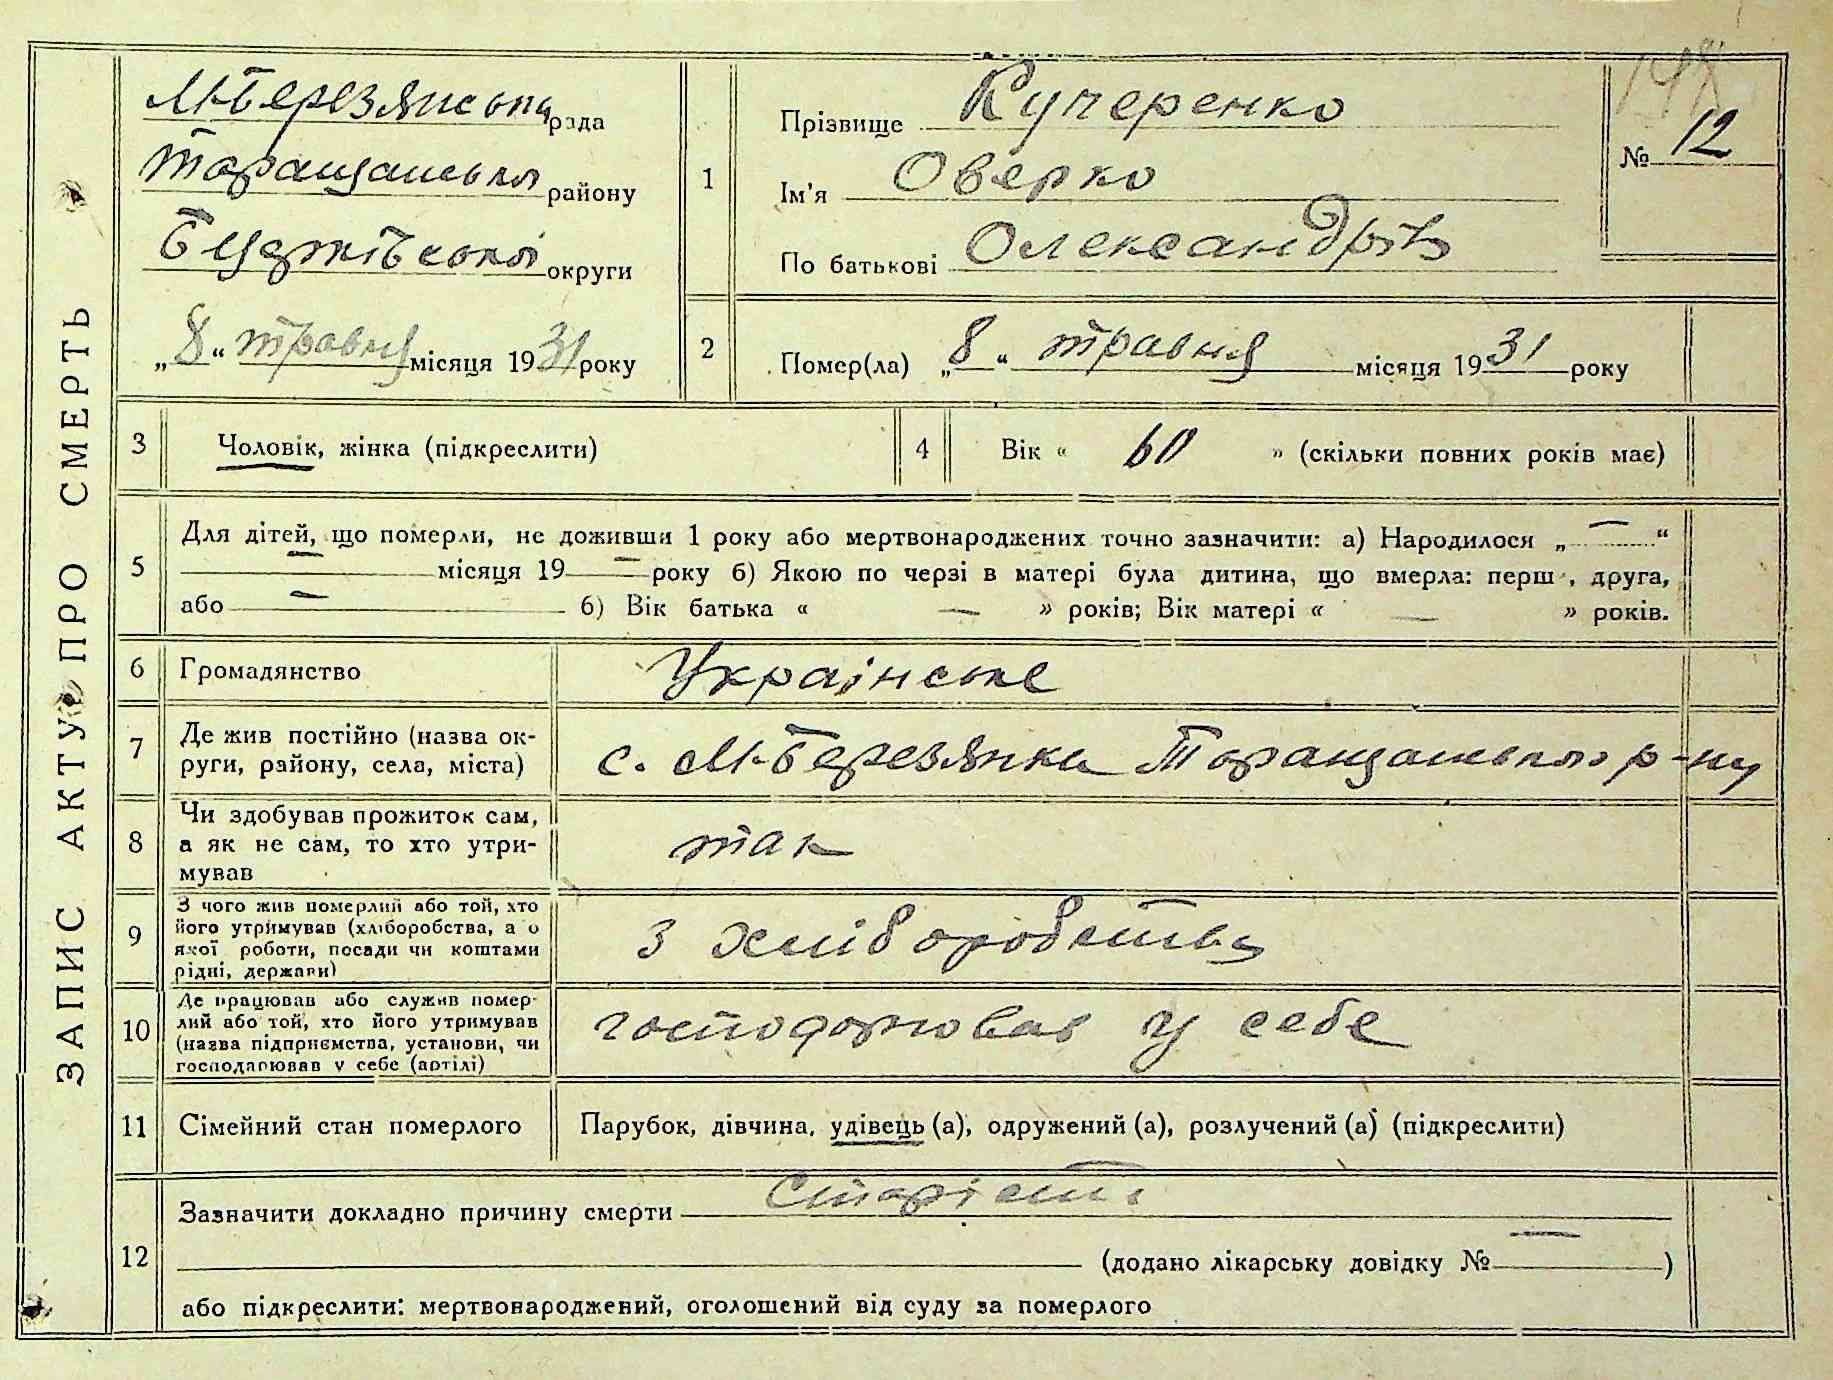 ЗАПИС АКТУ ПРО СМЕРТЬ
М-Березянська рада
Таращанського району
округи
„8“ травня місяця 1931 року
1
Прізвище Кучеренко
Ім'я Оверко
По батькові Олександрів
№ 12
2
Помер(ла) „8“ травня місяця 1931 року
3
Чоловік, жінка (підкреслити)
4
Вік « 60 » (скільки повних років має)
5
Для дітей, що померли, не доживши 1 року або мертвонароджених точно зазначити: а) Народилося „ — “
— місяця 19 — року б) Якою по черзі в матері була дитина, що вмерла: перш , друга,
або — б) Вік батька « — » років; Вік матері « — » років.
6
Громадянство
Українське
7
Де жив постійно (назва ок-
руги, району, села, міста)
с. М-Березянка Таращанського р-ну
8
Чи здобував прожиток сам,
а як не сам, то хто утри-
мував
так
9
З чого жив померлий або той, хто
його утримував (хліборобства, а о
якої роботи, посади чи коштами
рідні, держави)
з хліборобства
10
Де працював або служив помер-
лий або той, хто його утримував
(назва підприємства, установи, чи
господарював у себе (артілі)
господарював у себе
11
Сімейний стан померлого
Парубок, дівчина, удівець (а), одружений (а), розлучений (а) (підкреслити)
12
Зазначити докладно причину смерти Старість
(додано лікарську довідку № — )
або підкреслити: мертвонароджений, оголошений від суду за померлого